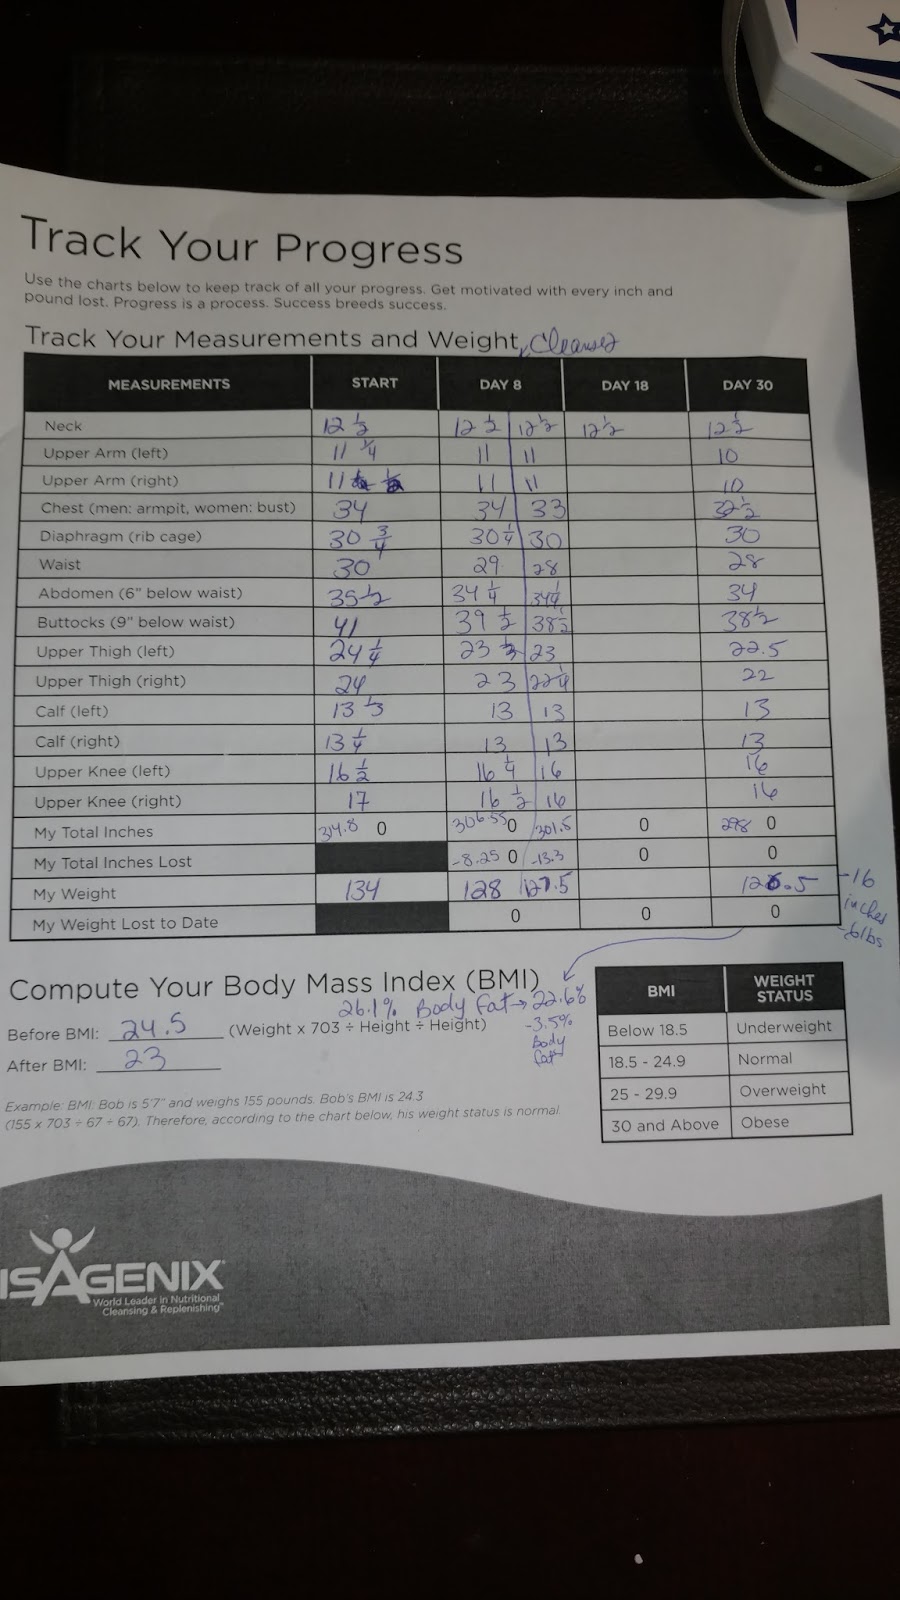 Track Your Progress
Use the charts below to keep track of all your progress. Get motivated with every inch and
pound lost. Progress is a process. Success breeds success.
Track Your Measurements and Weight, Cleanses
MEASUREMENTS START DAY 8 DAY 18 DAY 30
Neck 12 1/2 12 1/2 12 1/2 12 1/2 12 1/2
Upper Arm (left) 11 1/4 11 11 10
Upper Arm (right) 11 11 11 10
Chest (men: armpit, women: bust) 34 34 33 32 1/2
Diaphragm (rib cage) 30 3/4 30 1/4 30 30
Waist 30 29 28 28
Abdomen (6" below waist) 35 1/2 34 1/4 34 1/4 34
Buttocks (9" below waist) 41 39 1/2 38 1/2 38 1/2
Upper Thigh (left) 24 1/4 23 23 22.5
Upper Thigh (right) 24 23 22 1/4 22
Calf (left) 13 1/3 13 13 13
Calf (right) 13 1/4 13 13 13
Upper Knee (left) 16 1/2 16 1/4 16 16
Upper Knee (right) 17 16 1/2 16 16
My Total Inches 314.8 0 306.55 0 301.5 0 298 0
My Total Inches Lost -8.25 0 -13.3 0 0
My Weight 134 128 127.5 126.5 -16
inches
My Weight Lost to Date 0 0 0 -6lbs
Compute Your Body Mass Index (BMI)
26.1% Body fat → 22.6%
Before BMI: 24.5 (Weight x 703 ÷ Height ÷ Height) -3.5%
Body
fat
After BMI: 23
Example: BMI: Bob is 5'7" and weighs 155 pounds. Bob's BMI is 24.3
(155 x 703 ÷ 67 ÷ 67). Therefore, according to the chart below, his weight status is normal.
BMI WEIGHT
STATUS
Below 18.5 Underweight
18.5 - 24.9 Normal
25 - 29.9 Overweight
30 and Above Obese
ISAGENIX
World Leader in Nutritional
Cleansing & Replenishing™